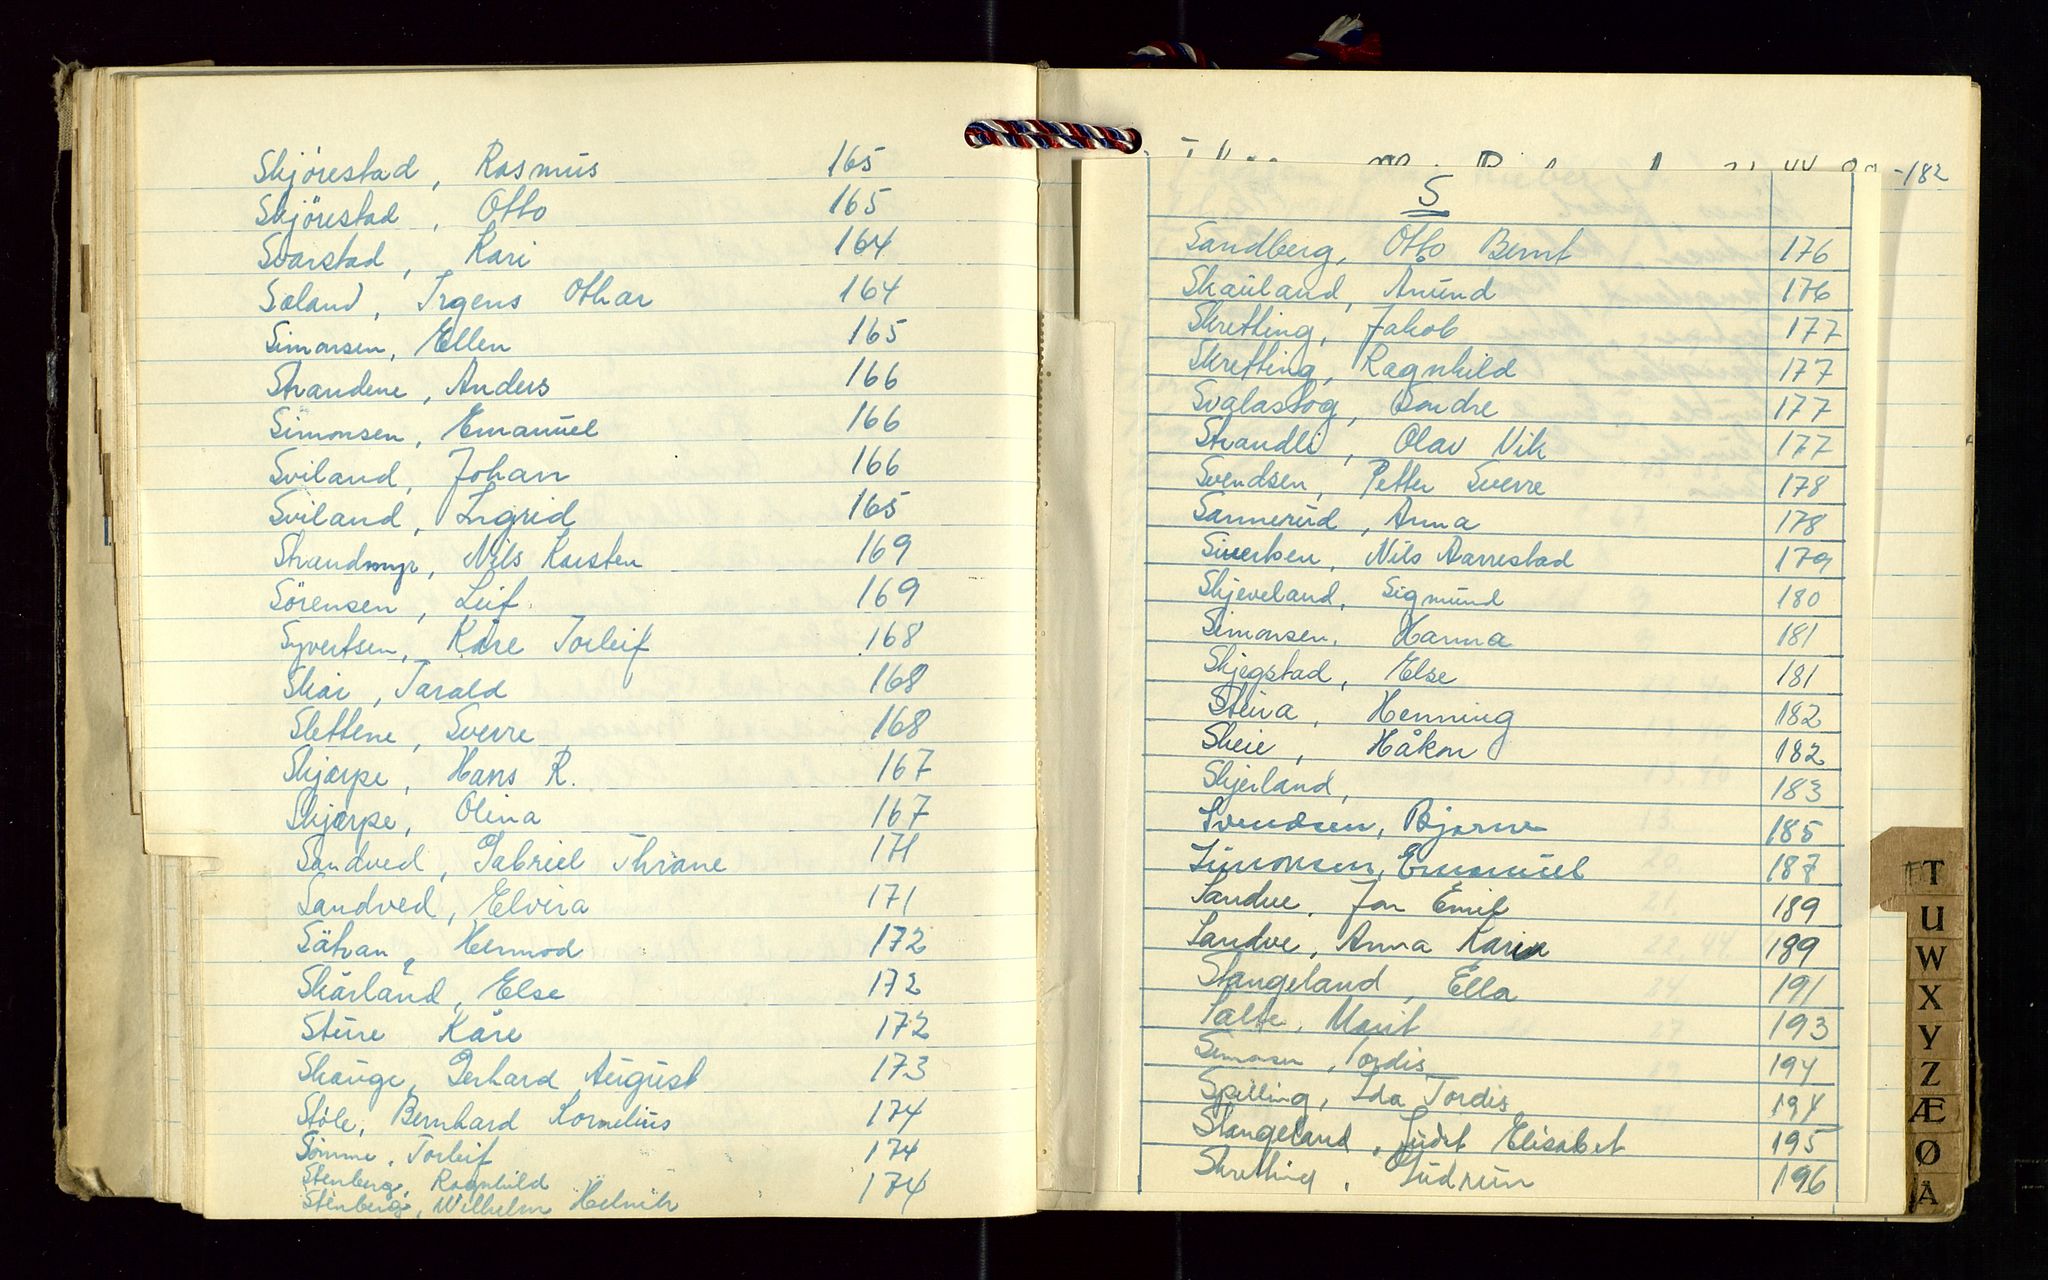 Skjørestad, Rasmus 165
Skjørestad, Otto 165
Svarstad, Kari 164
Søland, Irgens Othar 164
Simonsen, Ellen 165
Strandene, Anders 166
Simonsen, Emanuel 166
Sviland, Johan 166
Sviland, Ingrid 165
Strandmyr, Nils Karsten 169
Sörensen, Leif 169
Syvertsen, Kåre Torleif 168
Skai, Tarald 168
Slettene, Sverre 168
Skjærpe, Hans R. 167
Skjærpe, Olina 167
Sandved, Gabriel Thrane 171
Sandved, Elvira 171
Sätran, Hermod 172
Skårland, Else 172
Sture Kåre 172
Skauge, Gerhard August 173
Støle, Bernhard Kornelius 174
Sömme, Torleif 174
Stenberg, Ragnhild
Stenberg, Wilhelm Helnik 174
-182
S
Sandberg, Otto Bernt 176
Skauland, Anund 176
Skretting, Jakob 177
Skretting, Ragnhild 177
Svalastog, Sondre 177
Strandli, Olav Vik 177
Svendsen, Petter Sverre 178
Sannerud, Anna 178
Sivertsen, Nils Aarrestad 179
Skjeveland, Sigmund 180
Simonsen, Hanna 181
Skjegstad, Else 181
Stuva, Henning 182
Skeie, Håkon 182
Skjeiland, 183
Svendsen, Bjarne 185
Simonsen, Emanuel 187
Sandve, Jon Emil 189
Sandve, Anna Karin 189
Stangeland, Ella 191
Salte, Marit 193
Simonsen, Tordis 194
Spilling, Ida Tordis 194
Stangeland, Judit Elisabet 195
Skretting, Gudrun 196
T
U
W
X
Y
Z
Æ
Ø
Å